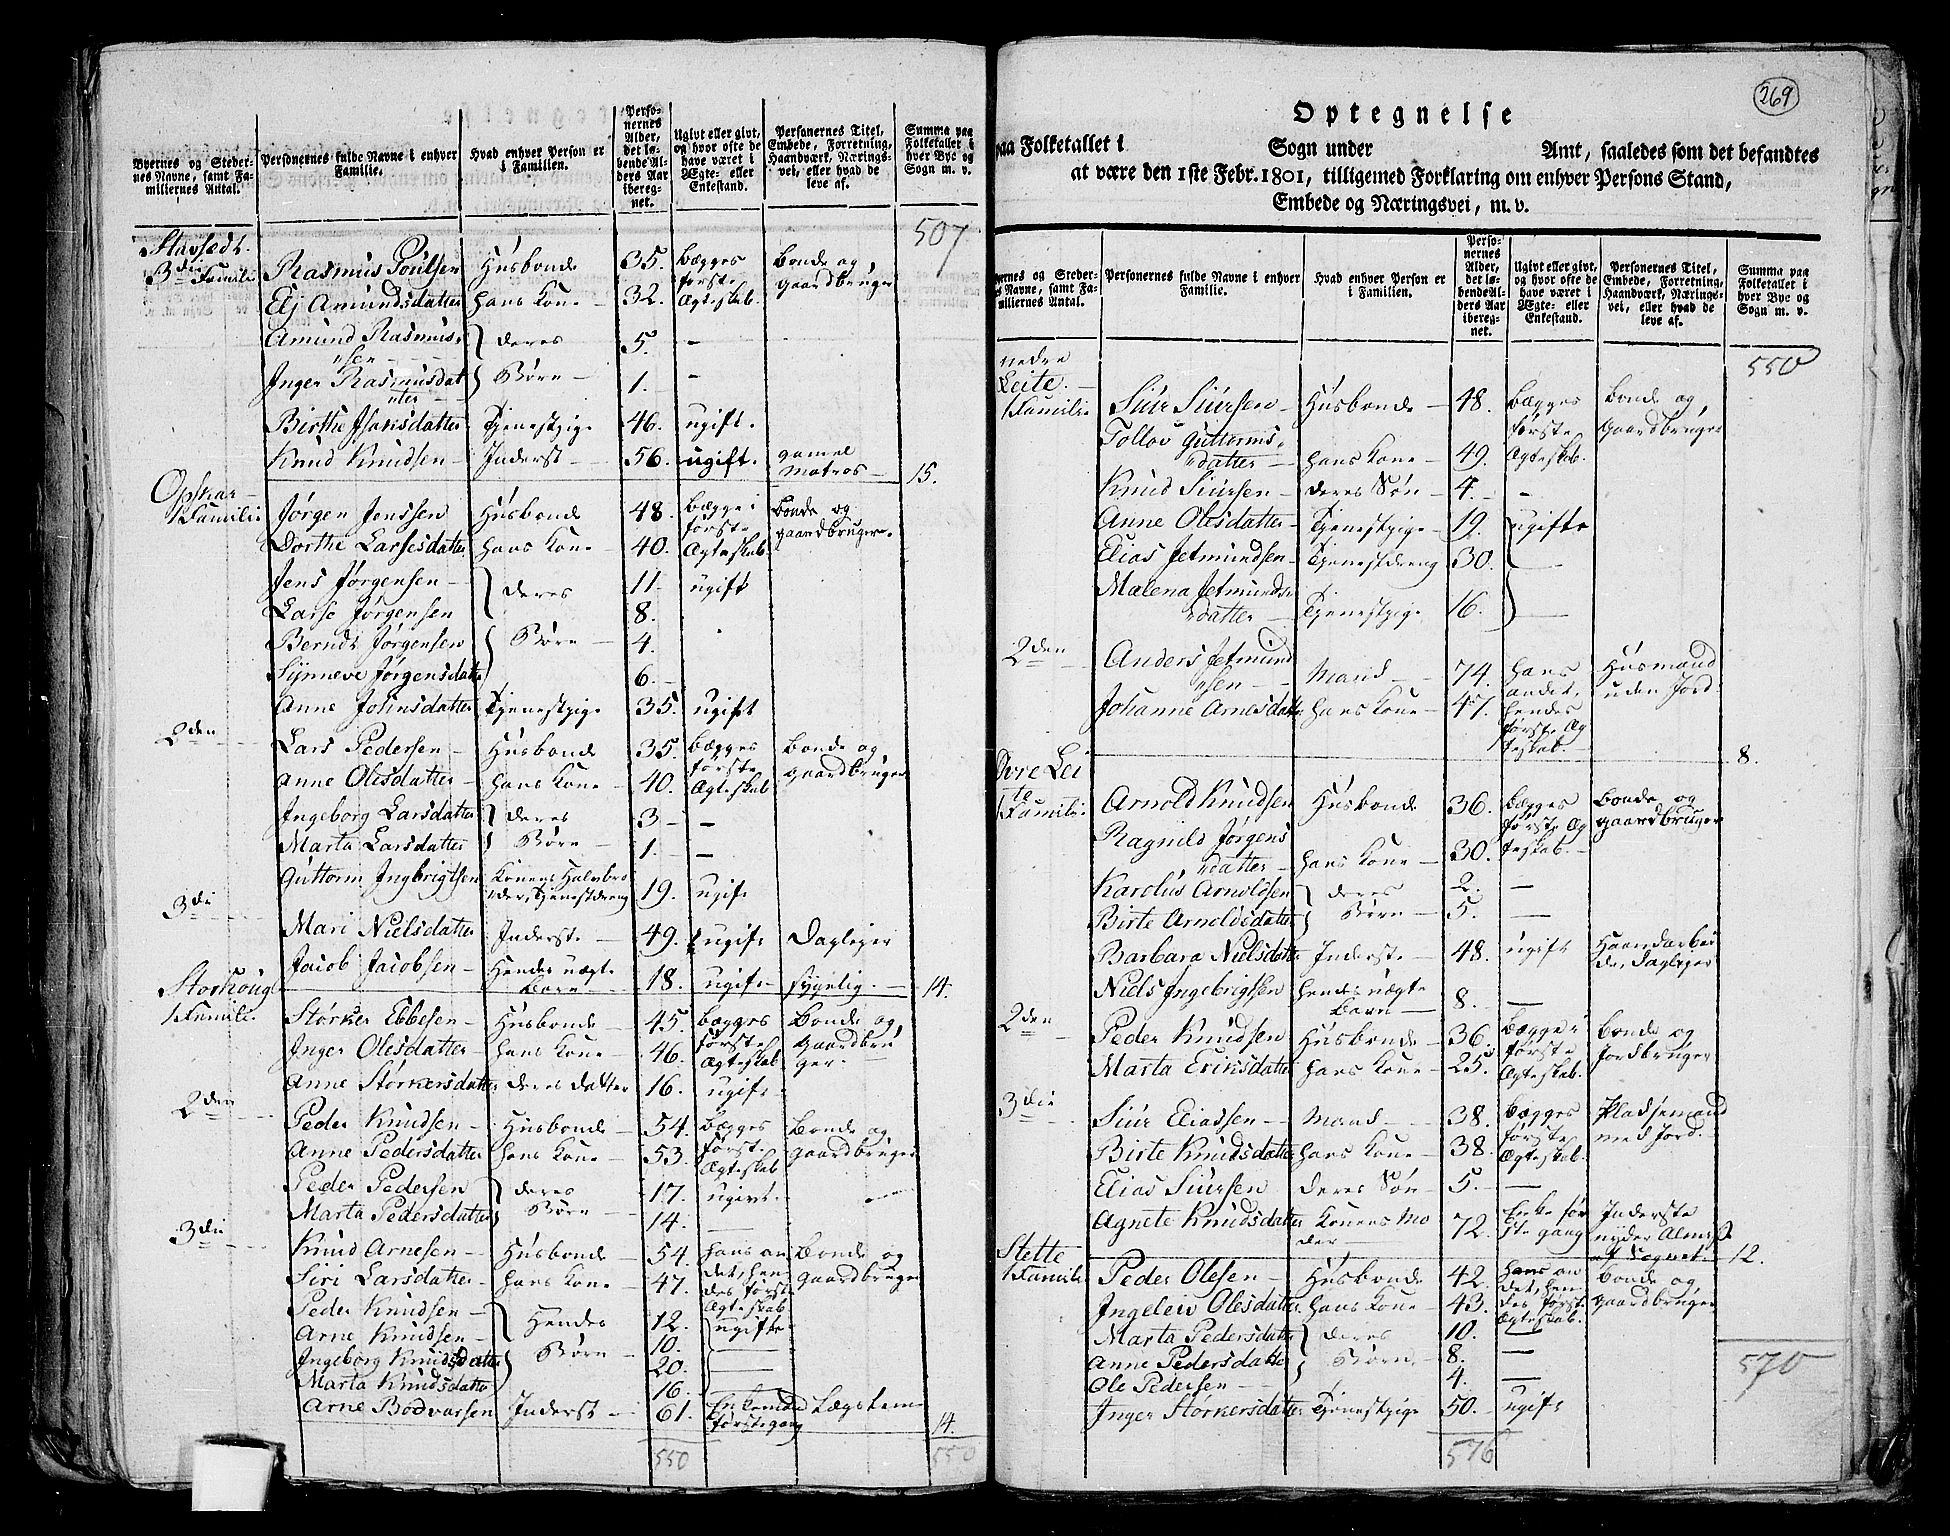 Byernes og Steder-
nes Navne, samt Fa-
miliernes Antal.
Personernes fulde Navne i enhver
Familie.
Hvad enhver Person er
i Familien.
Perso-
nernes
Alder,
det lø-
bende Al-
ders Aar
iberegnet.
Ugivt eller givt,
og hvor ofte de
have været i
Ægte- eller
Enkestand.
Personernes Titel,
Embede, Forretning,
Haandværk, Nærings-
vei, eller hvad de
leve af.
Summa paa
Folketallet i
hver Bye og
Sogn m. v.
507
Stavsedt.
3die Familie Rasmus Poulsen Husbonde 35. bægges første Ægteskab Bonde og gaardbruger
Elj Amundsdatter hans Kone 32.
Amund Rasmus,,sen } deres 5. –
Inger Rasmusdat,,ter } Børn – 1. –
Birthe Isaksdatter Tjenestpige 46. ugift.
Knud Knudsen – Inderst – 56. ugift. gamel Matros – 15.
Opskar –
1 Familie Jørgen Jenssen Husbonde 48. bægge i første Ægteskab Bonde og gaardbruger.
Dorthe Larsesdatter hans Kone 40.
Jens Jørgensen – } deres 11. ugift
Larse Jørgensen 8.
Berndt Jørgensen } Børn – 4.
Synneve Jørgensdatter 6. –
Anne Johnsdatter Tjenestpige 35. ugift
2den Lars Pedersen – Husbonde 35. bægges første Ægteskab Bonde og gaardbruger
Anne Olesdatter hans Kone – 40.
Ingeborg Larsdatter } deres 3 – –
Marta Larsdatter } Børn – 1. –
Guttorm Ingbrigtsen Konens Halvbroder, Tjenestdreng 19. ugift
3die Mari Nielsdatter Inderste – 49. ugift Daglejer
Jacob Jacobsen – Hendes uægte Barn – 18. ugift – sygelig. – 14.
Storhoug
1 Familie. Størker Ebbesen – Husbonde – 45. bægges første Ægteskab Bonde og gaardbruger.
Inger Olesdatter – hans Kone – 46.
Anne Størkersdatter deres datter 16. ugift –
2den Peder Knudsen – Husbonde – 54. bægges første Ægteskab Bonde og gaardbruger
Anne Pedersdatter hans Kone – 53.
Peder Pedersen } deres 17. ugivt –
Marta Pedersdatter } Børn – 14. –
3die Knud Arnesen – Husbonde 54. hans andet, hendes første Ægteskab Bonde og gaardbruger
Siri Larsdatter – hans Kone – 47.
Peder Knudsen – } Hendes 12. ugifte
Arne Knudsen – 10.
Ingeborg Knudsdatter } Børn – 20.
Marta Knudsdatter 16.
Arne Bodvarsen Inderst – 61. Enkemand første gang 14.
550 550
269
Optegnelse
paa Folketallet i Sogn under Amt, saaledes som det befandtes
at være den 1ste Febr. 1801, tilligemed Forklaring om enhver Persons Stand,
Embede og Næringsvei, m. v.
Byernes og Steder-
nes Navne, samt Fa-
miliernes Antal.
Personernes fulde Navne i enhver
Familie.
Hvad enhver Person er
i Familien.
Perso-
nernes
Alder,
det lø-
bende Al-
ders Aar
ibereg-
net.
Ugivt eller givt,
og hvor ofte de
have været i
Ægte- eller
Enkestand.
Personernes Titel,
Embede, Forretning,
Haandværk, Nærings-
vei, eller hvad de
leve af.
Summa paa
Folketallet i
hver Bye og
Sogn m. v.
550
nedre
Leite. –
1 Familie Siur Siursen – Husbonde – 48. bægges første Ægteskab. Bonde og gaardbruger
Tollov Guttorms,,datter – hans Kone – 49.
Knud Siursen – deres Søn – 4. –
Anne Olesdatter – Tjenestpige – 19. ugifte
Elias Jetmundsen – Tjenestdreng 30. –
Malena Jetmunds,,datter – Tjenestpige 16. –
2den Anders Jetmund,,sen – Mand – 74. hans andet, hendes første Ægteskab. – Husmand uden Jord.
Johanne Arnesdatter hans Kone – 47.
8.
Øvre Lei
te
1 Familie Arnold Knudsen Husbonde 36. bægges første Ægteskab. – Bonde og gaardbruger
Ragnild Jørgens,,datter – hans Kone – 30.
Karolus Arnoldsen } deres 2. –
Birte Arnoldsdatter } Børn – 5. –
Barbara Nielsdatter Inderste – 48. ugift Haandarbeide, Daglejer
Niels Ingebrigtsen hendes uægte Barn – 8. –
2den Peder Knudsen Husbonde – 36. bægge i første Ægteskab. Bonde og Jordbruger
Marta Eriksdatter hans Kone – 25.
3die Siur Eliassen – Mand – 38. bægges første Ægteskab. Pladsemand med Jord. –
Birte Knudsdatter hans Kone – 38.
Elias Siursen deres Søn – 5. –
Agnete Knudsdatter Konens Moder – 72. Enke første gang Inderste nyder Almisse af Sognet – 12.
Stette
1 Familie Peder Olesen – Husbonde 42. hans andet, hendes første Ægteskab. Bonde og gaardbruger
Ingeleiv Olesdatter hans Kone – 43.
Marta Pedersdatter } deres 10. –
Anne Pedersdatter } Børn. 8. –
Ole Pedersen – 4. –
Inger Størkersdatter Tjenestpige 50. – ugift
570
576